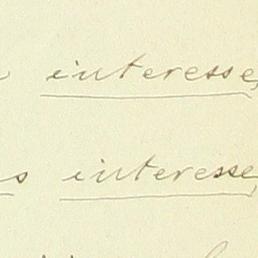 interesse,
s interesse,